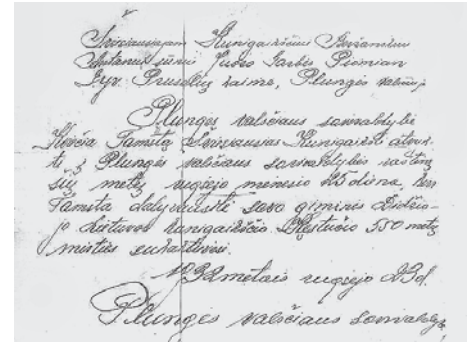 Šviesiausiajam Kunigaikščiui Beržanskiui
Antanui sūnui Judro Sarbės
Gyv Prusalių kaime, Plungės valsčiuj
Plungės valsčiaus savivaldybė
Kviečia Tamistą Šviesiausias Kunigaikšti atvik-
ti į Plungės valsčiaus savivaldybės raštinę
šių metų rugsėjo mėnesio 25 dieną, kur
Tamista dalyvausite savo giminės Didžio-
jo Lietuvos kunigaikščio Kęstučio 550 metų
mirties sukaktuvėse.
1932 metais rugsėjo 23 d.
Plungės valsčiaus savivaldybė